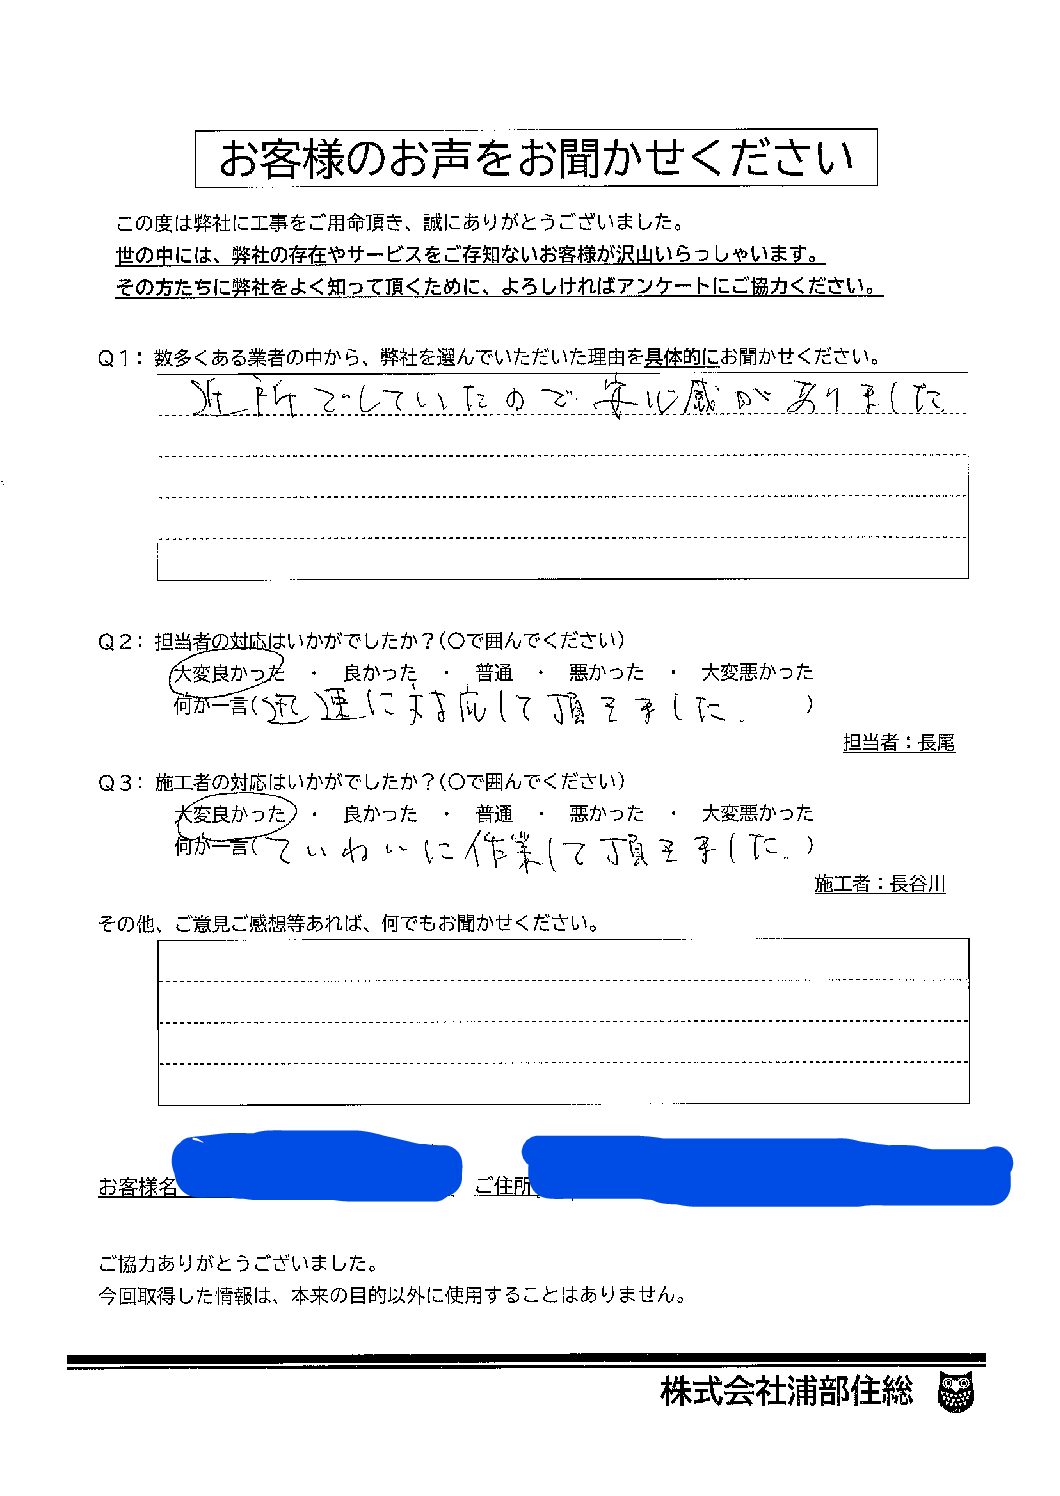 お客様のお声をお聞かせください
この度は弊社に工事をご用命頂き、誠にありがとうございました。
世の中には、弊社の存在やサービスをご存知ないお客様が沢山いらっしゃいます。
その方たちに弊社をよく知って頂くために、よろしければアンケートにご協力ください。
Q1：数多くある業者の中から、弊社を選んでいただいた理由を具体的にお聞かせください。
近所でしていたので安心感がありました
Q2：担当者の対応はいかがでしたか？（〇で囲んでください）
大変良かった ・ 良かった ・ 普通 ・ 悪かった ・ 大変悪かった
何か一言（迅速に対応して頂きました。）
担当者：長尾
Q3：施工者の対応はいかがでしたか？（〇で囲んでください）
大変良かった ・ 良かった ・ 普通 ・ 悪かった ・ 大変悪かった
何か一言（ていねいに作業して頂きました。）
施工者：長谷川
その他、ご意見ご感想等あれば、何でもお聞かせください。
お客様名 ご住所
ご協力ありがとうございました。
今回取得した情報は、本来の目的以外に使用することはありません。
株式会社浦部住総